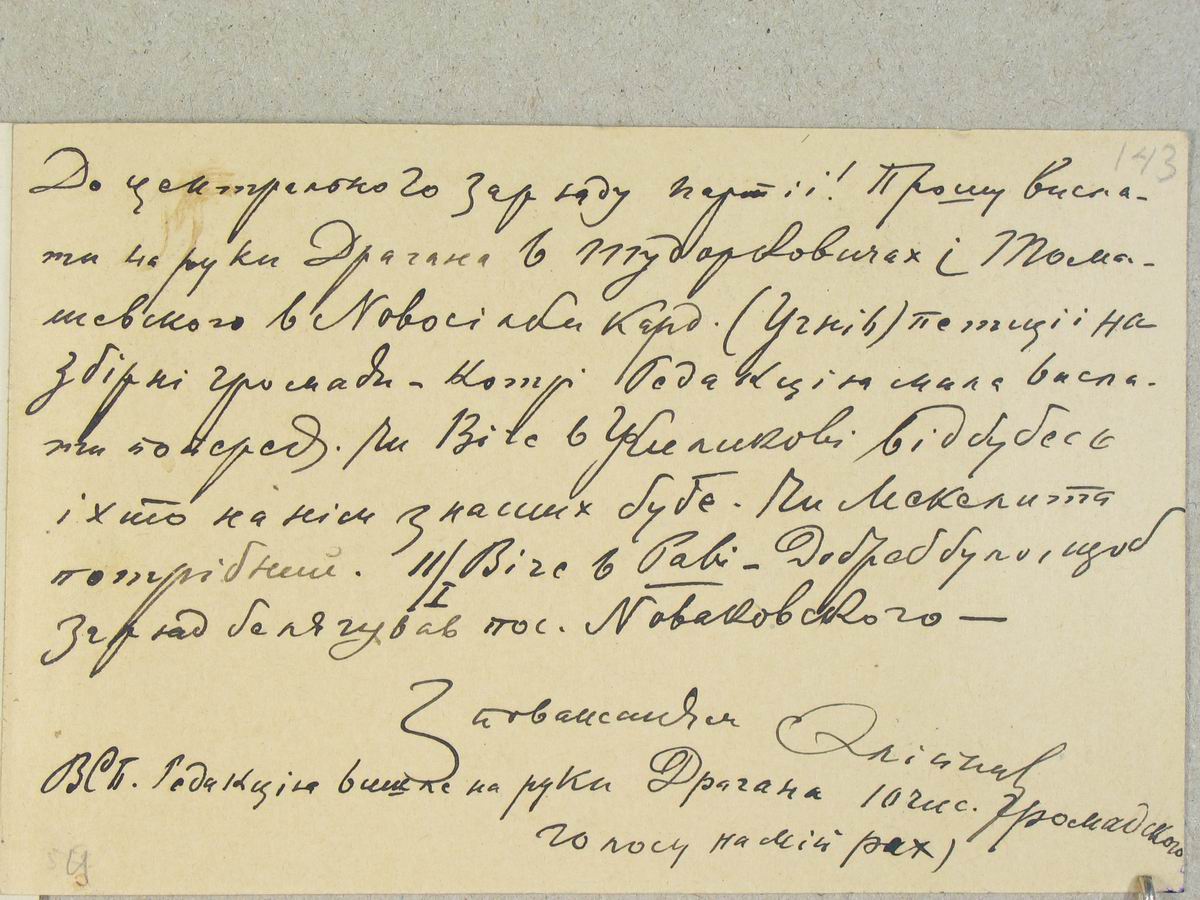 143
До центрального заряду партії! Прошу висла-
ти на руки Драгана в Тудорковичах і Тома-
шевского в Новосілки кард. (Угнів) петиції на
збірні громади - котрі Редакція мала висла-
ти поперед. Чи Віче в відбудесь
і хто на нім з наших буде. Чи
потрібний. 11/I Віче в Раві - Добре було, щоб
Заряд делягував пос. Новаковского —
З поважанням Олійник
ВСП. Редакція вишле на руки Драгана 10 чис. Громадского
голосу на мій рах)